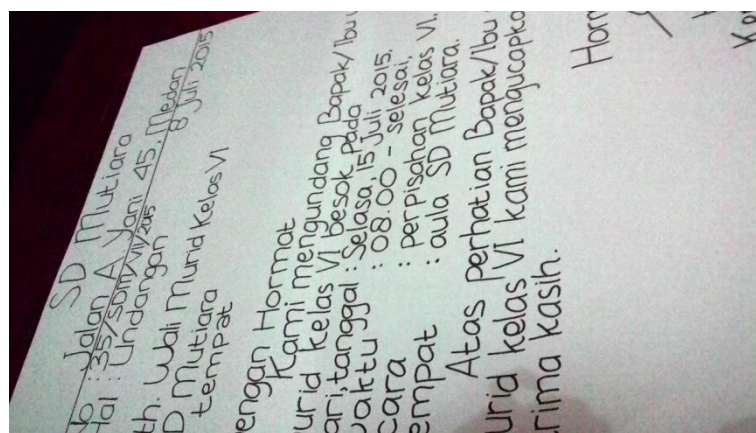 SD Mutiara
Jalan A. Yani 45, Medan
No : 35/SDM/VII/2015 8 Juli 2015
Hal : Undangan
th. Wali Murid Kelas VI
D Mutiara
tempat
engan Hormat
Kami mengundang Bapak/Ibu
urid kelas VI besok pada
ari, tanggal : Selasa, 15 Juli 2015.
aktu : 08.00 - selesai,
cara : perpisahan kelas VI.
empat : aula SD Mutiara.
Atas perhatian Bapak/Ibu
urid kelas VI kami mengucapka
rima kasih.
Horm